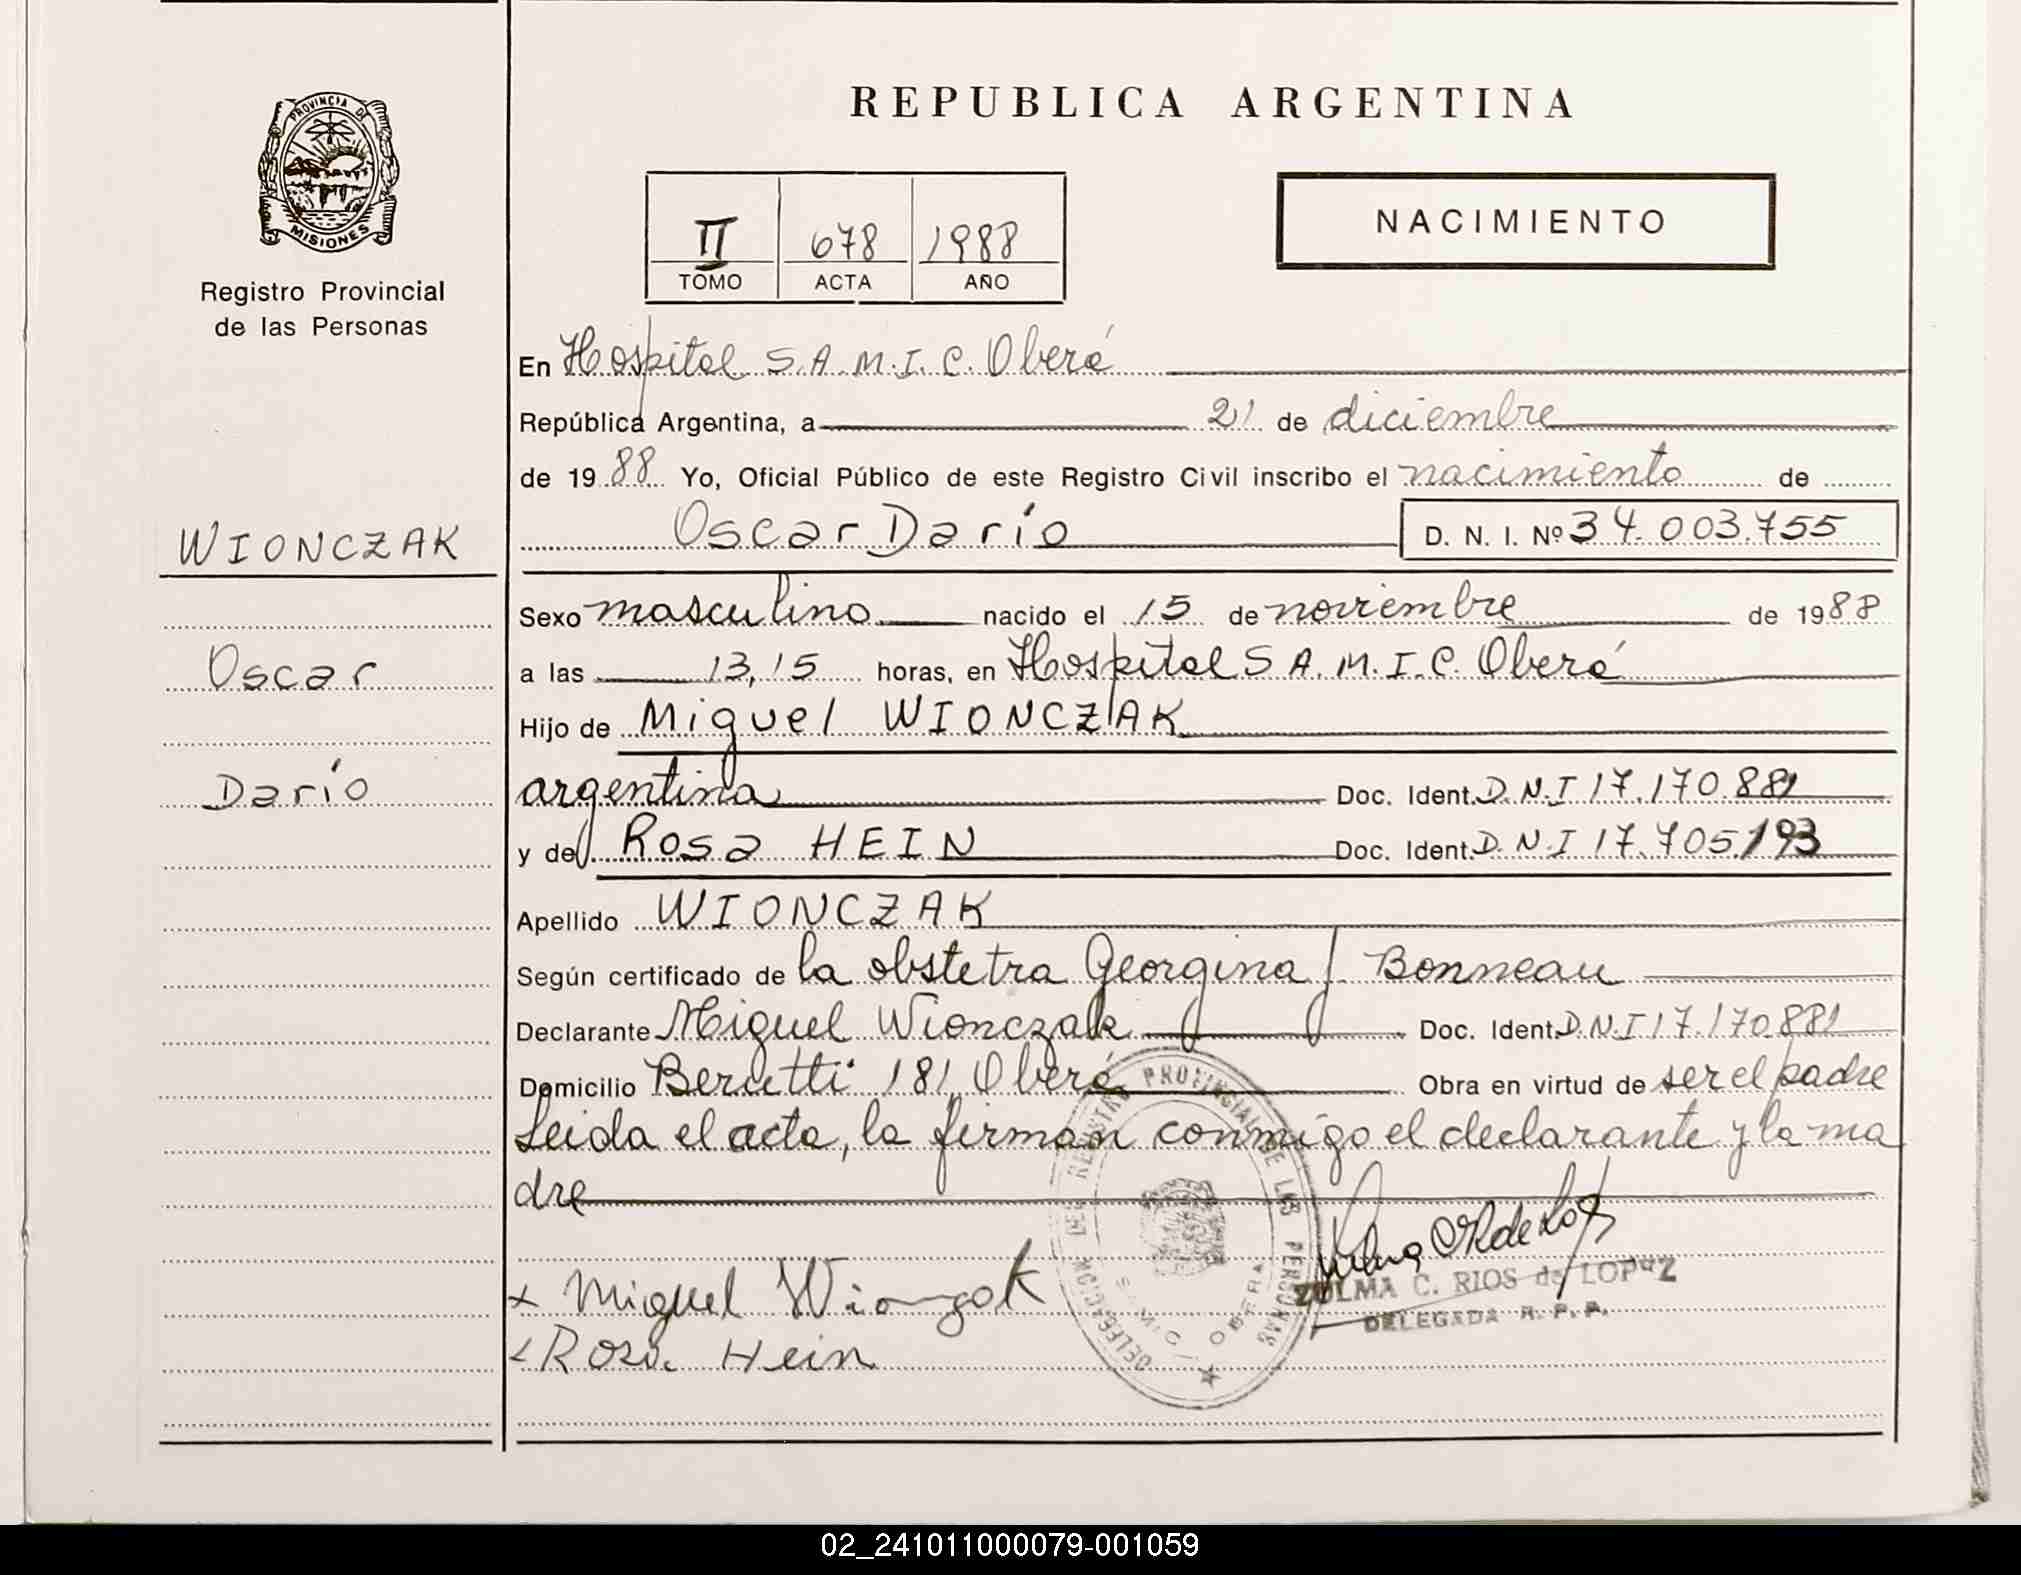 PROVINCIA DE
MISIONES
Registro Provincial
de las Personas
WIONCZAK
Oscar
Darío
REPUBLICA ARGENTINA
NACIMIENTO
II 678 1988
TOMO ACTA AÑO
En Hospital S.A.M.I.C. Oberá
República Argentina, a 21 de diciembre
de 1988 Yo, Oficial Público de este Registro Civil inscribo el nacimiento de
Oscar Darío D. N. I. Nº 34.003.755
Sexo masculino nacido el 15 de noviembre de 1988
a las 13,15 horas, en Hospital S.A.M.I.C. Oberá
Hijo de Miguel WIONCZAK
argentina Doc. Ident. D.N.I 17.170.881
y de Rosa HEIN Doc. Ident. D.N.I 17.705.193
Apellido WIONCZAK
Según certificado de la obstetra Georgina J. Bonneau
Declarante Miguel Wionczak Doc. Ident. D.N.I 17.170.881
Domicilio Berutti 181 Oberá Obra en virtud de ser el padre
Leida el acta, la firman conmigo el declarante y la ma
dre
DELEGACION DEL REGISTRO PROVINCIAL DE LAS PERSONAS
OBERA
x Miguel Wionczak
x Rosa Hein
ZULMA C. RIOS de LOPEZ
DELEGADA R. P. P.
02_241011000079-001059